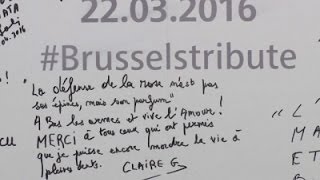 22.03.2016
#Brusselstribute
"La défense de la rose n'est pas
ses épines, mais son parfum"
A Bas les armes et vive l'Amour !
MERCI à tous ceux qui ont permis
que je puisse encore mordre la vie à
pleins dents.
CLAIRE G
"L
MA
ET
B